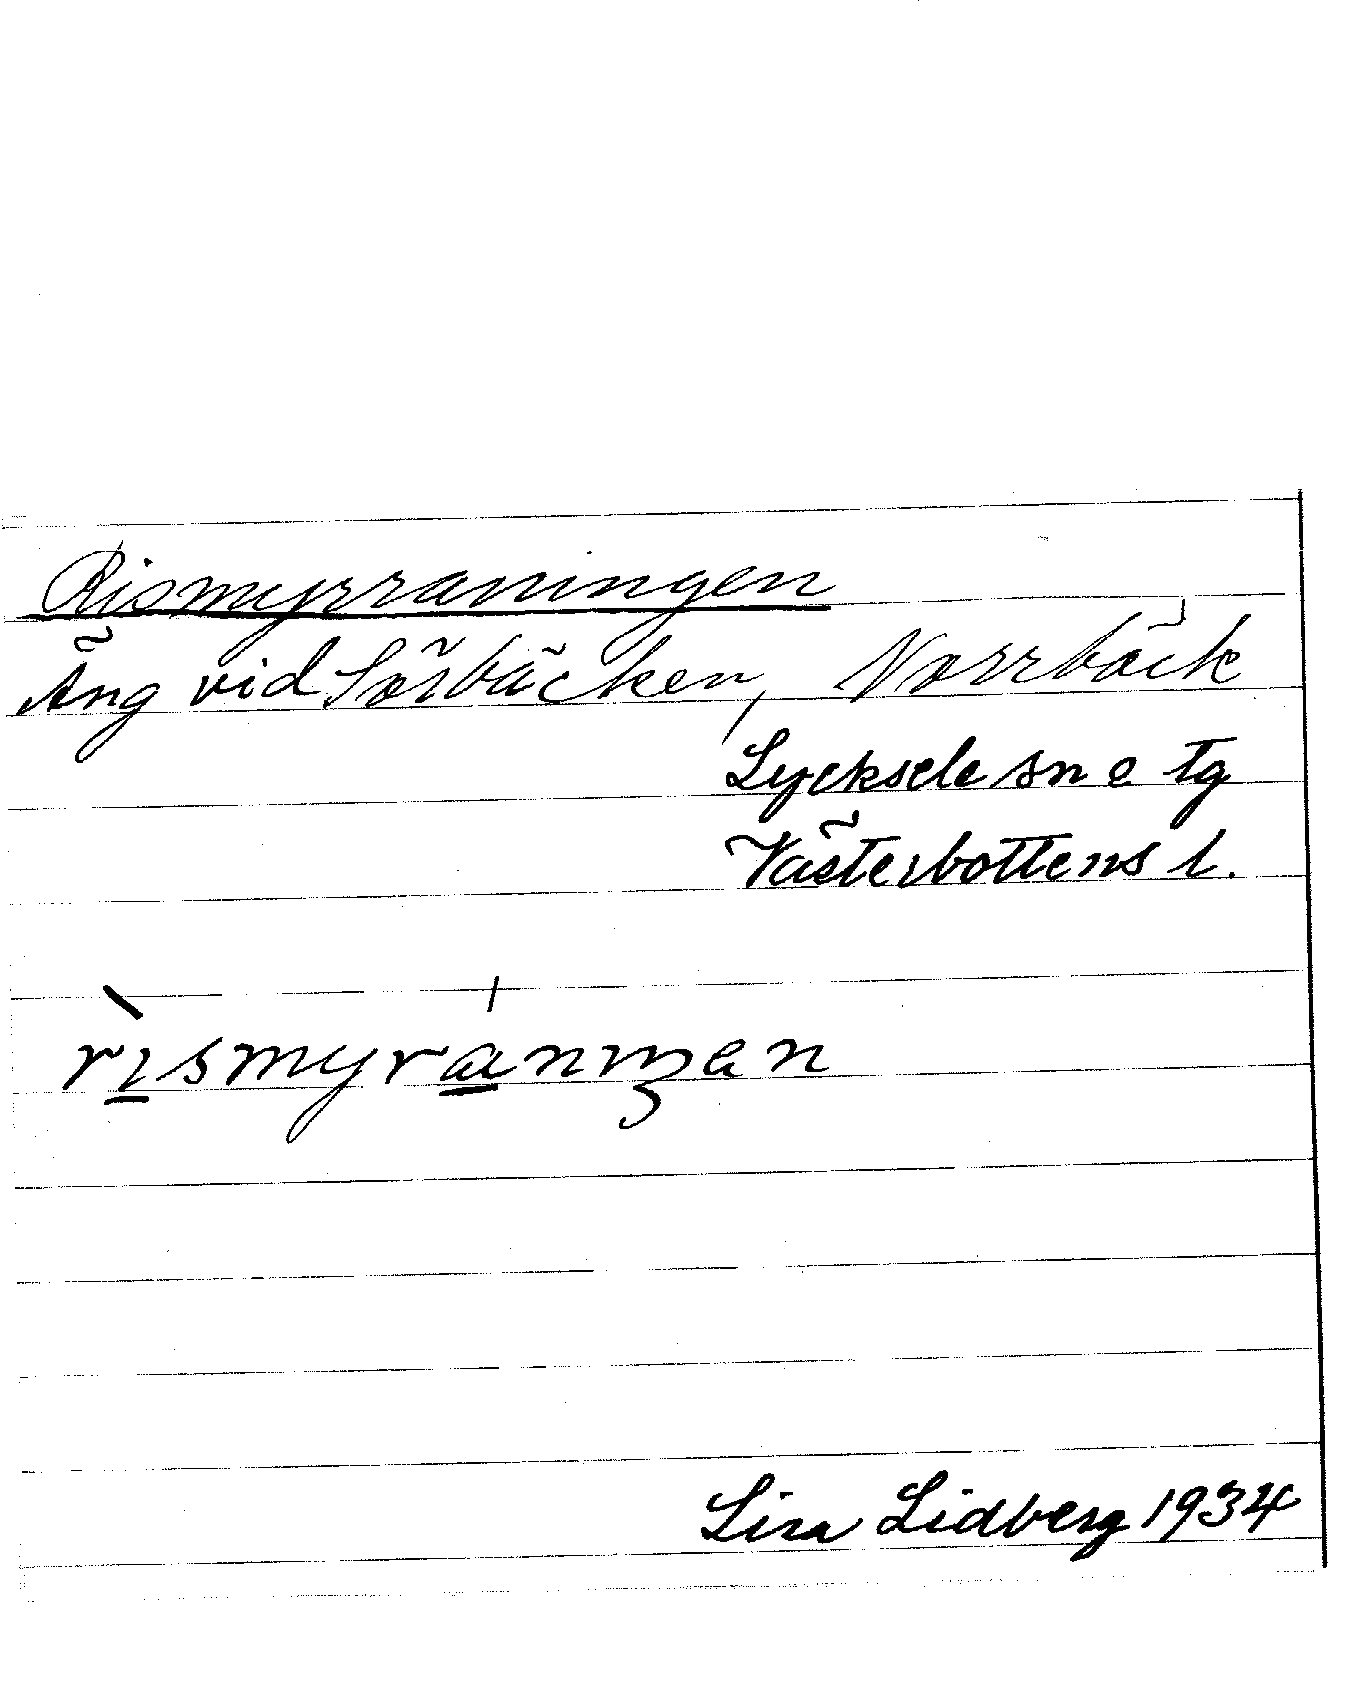 Rismyrraningen
Äng vid Sörbäcken, Norrbäck
Lycksele sn o tg
Västerbottens l.
rìsmyránıŋen
Lisa Lidberg 1934